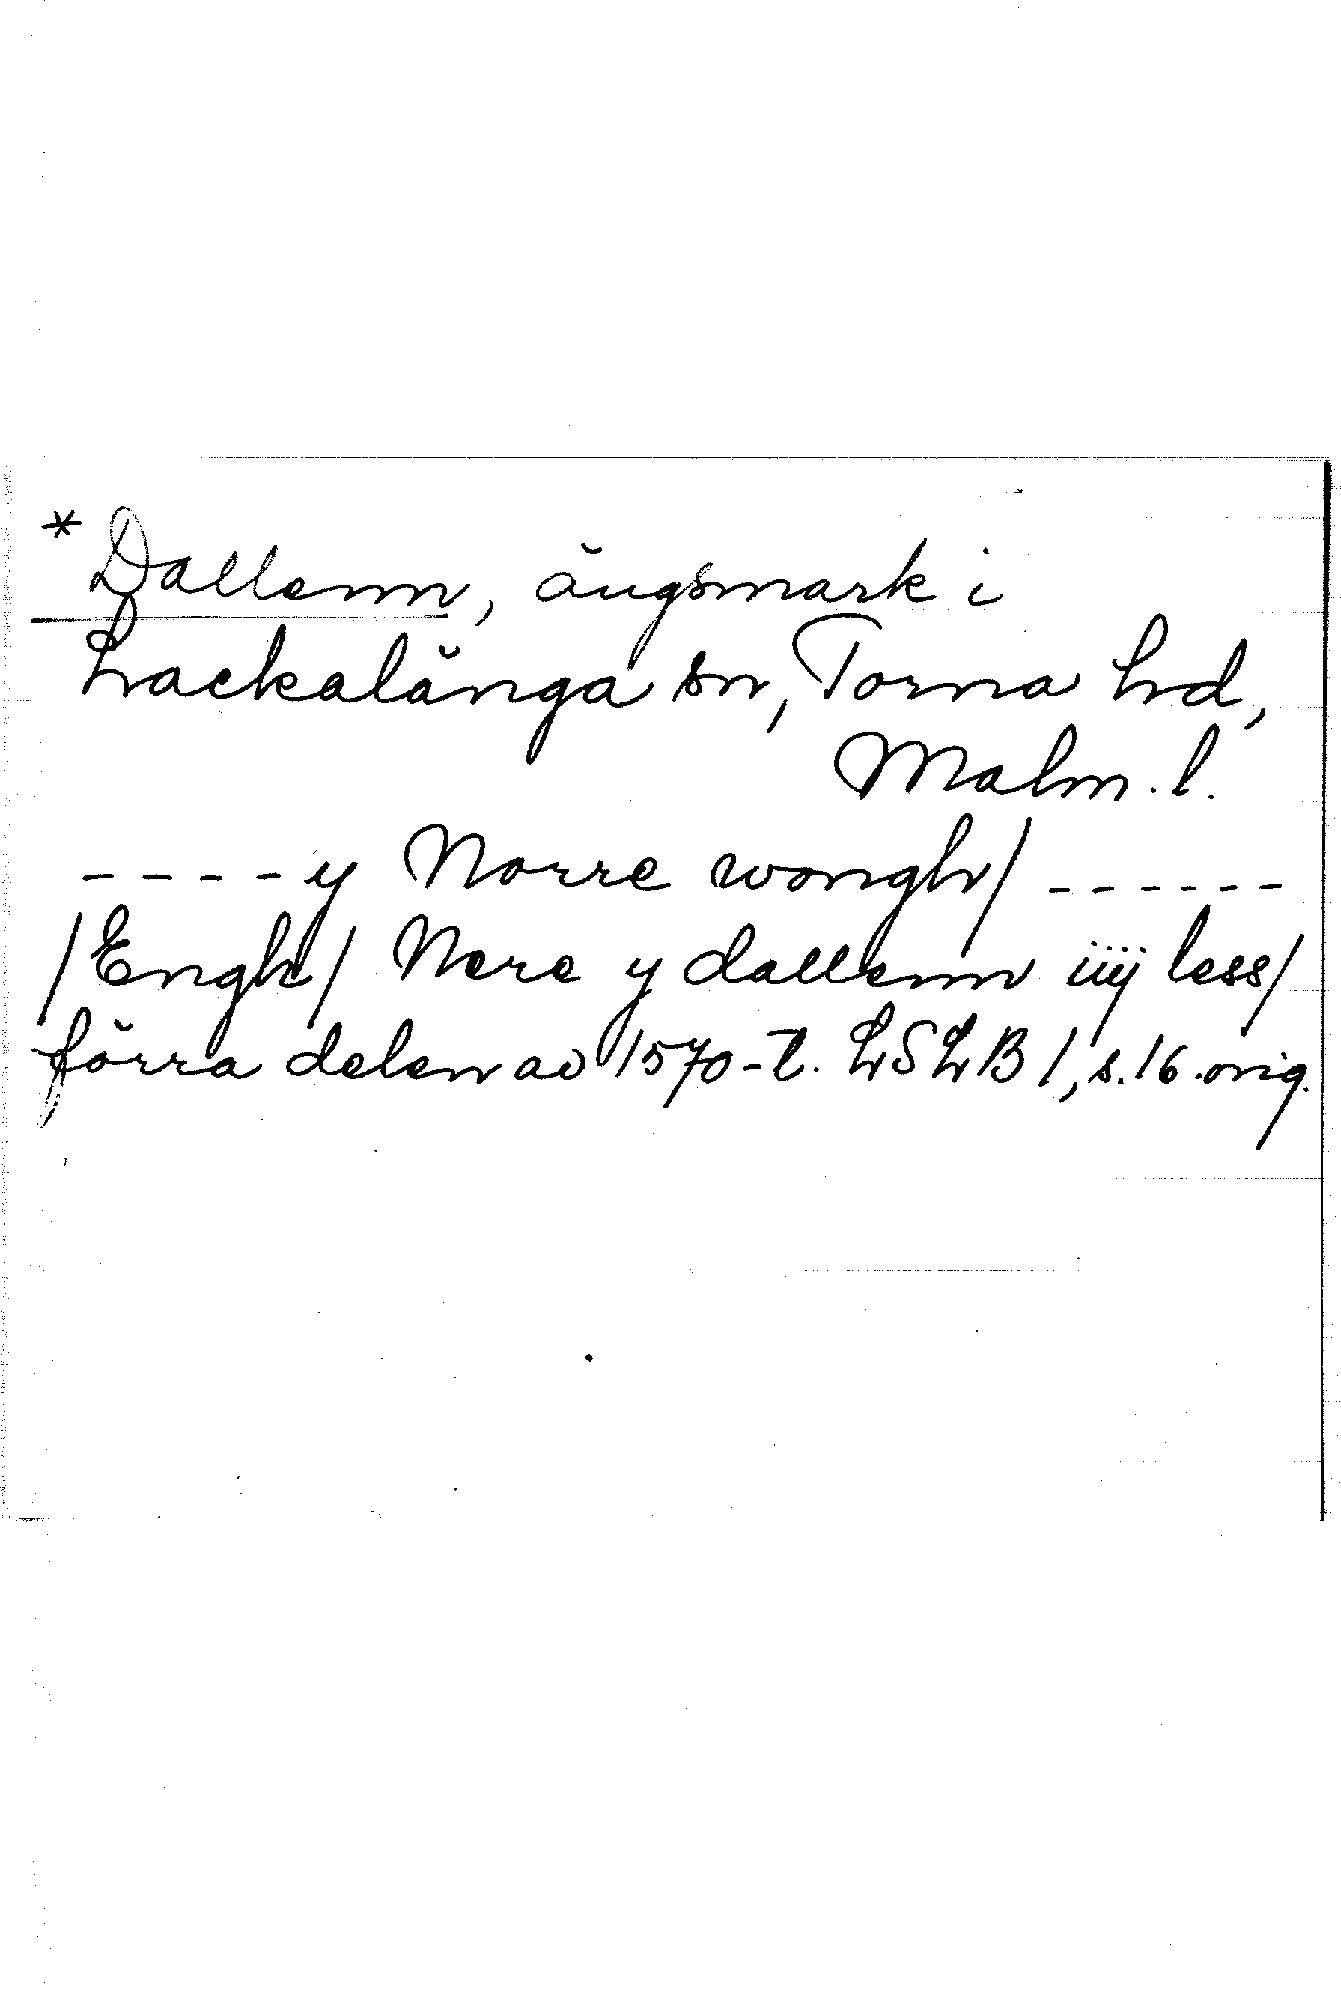 * Dallenn, ängsmark i
Lackalänga sn, Torna hd,
Malm. l.
---- y Norre wongh/ ------
/Engh/ Nere y dallenn iiij less/
förra delen av 1570-t. LSLB 1, s. 16. orig.